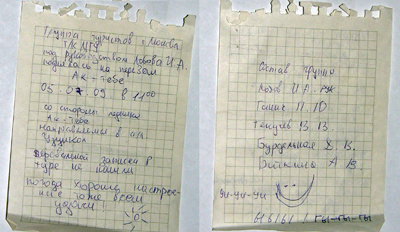 Группа туристов г. Москвы
Т/К МГУ
под руководством Лобова И.А.
поднялась на перевал
Ак-Тебе
05.07.09 в 14:00
со стороны ледника
Ак-Тебе
направляемся в а/л
Перевальной записки в
туре не нашли
погода хорошая настрое-
ние тоже всем
удачи!
Состав группы
И.А. рук
П. Ю
В. В.
Бурдельная Х. В.
А В.
Чи-чи-чи
гы-гы-гы